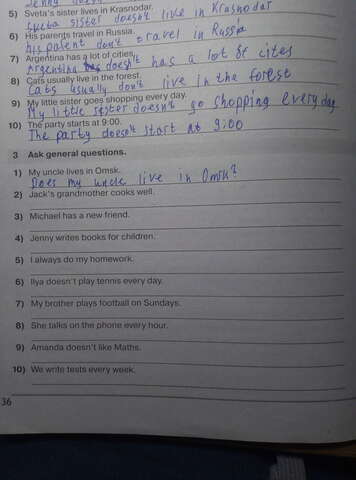 Jenny doesn't
5) Sveta's sister lives in Krasnodar.
Sveta sister doesn't live in Krasnodar
6) His parents travel in Russia.
his patent don't travel in Russia
7) Argentina has a lot of cities.
Argentina doesn't has a lot of cites
8) Cats usually live in the forest.
Cats usually don't live in the forest
9) My little sister goes shopping every day.
My little sister doesn't go shopping every day
10) The party starts at 9:00.
The party doesn't start at 9:00
3 Ask general questions.
1) My uncle lives in Omsk.
Does my uncle live in Omsk?
2) Jack's grandmother cooks well.
3) Michael has a new friend.
4) Jenny writes books for children.
5) I always do my homework.
6) Ilya doesn't play tennis every day.
7) My brother plays football on Sundays.
8) She talks on the phone every hour.
9) Amanda doesn't like Maths.
10) We write tests every week.
36